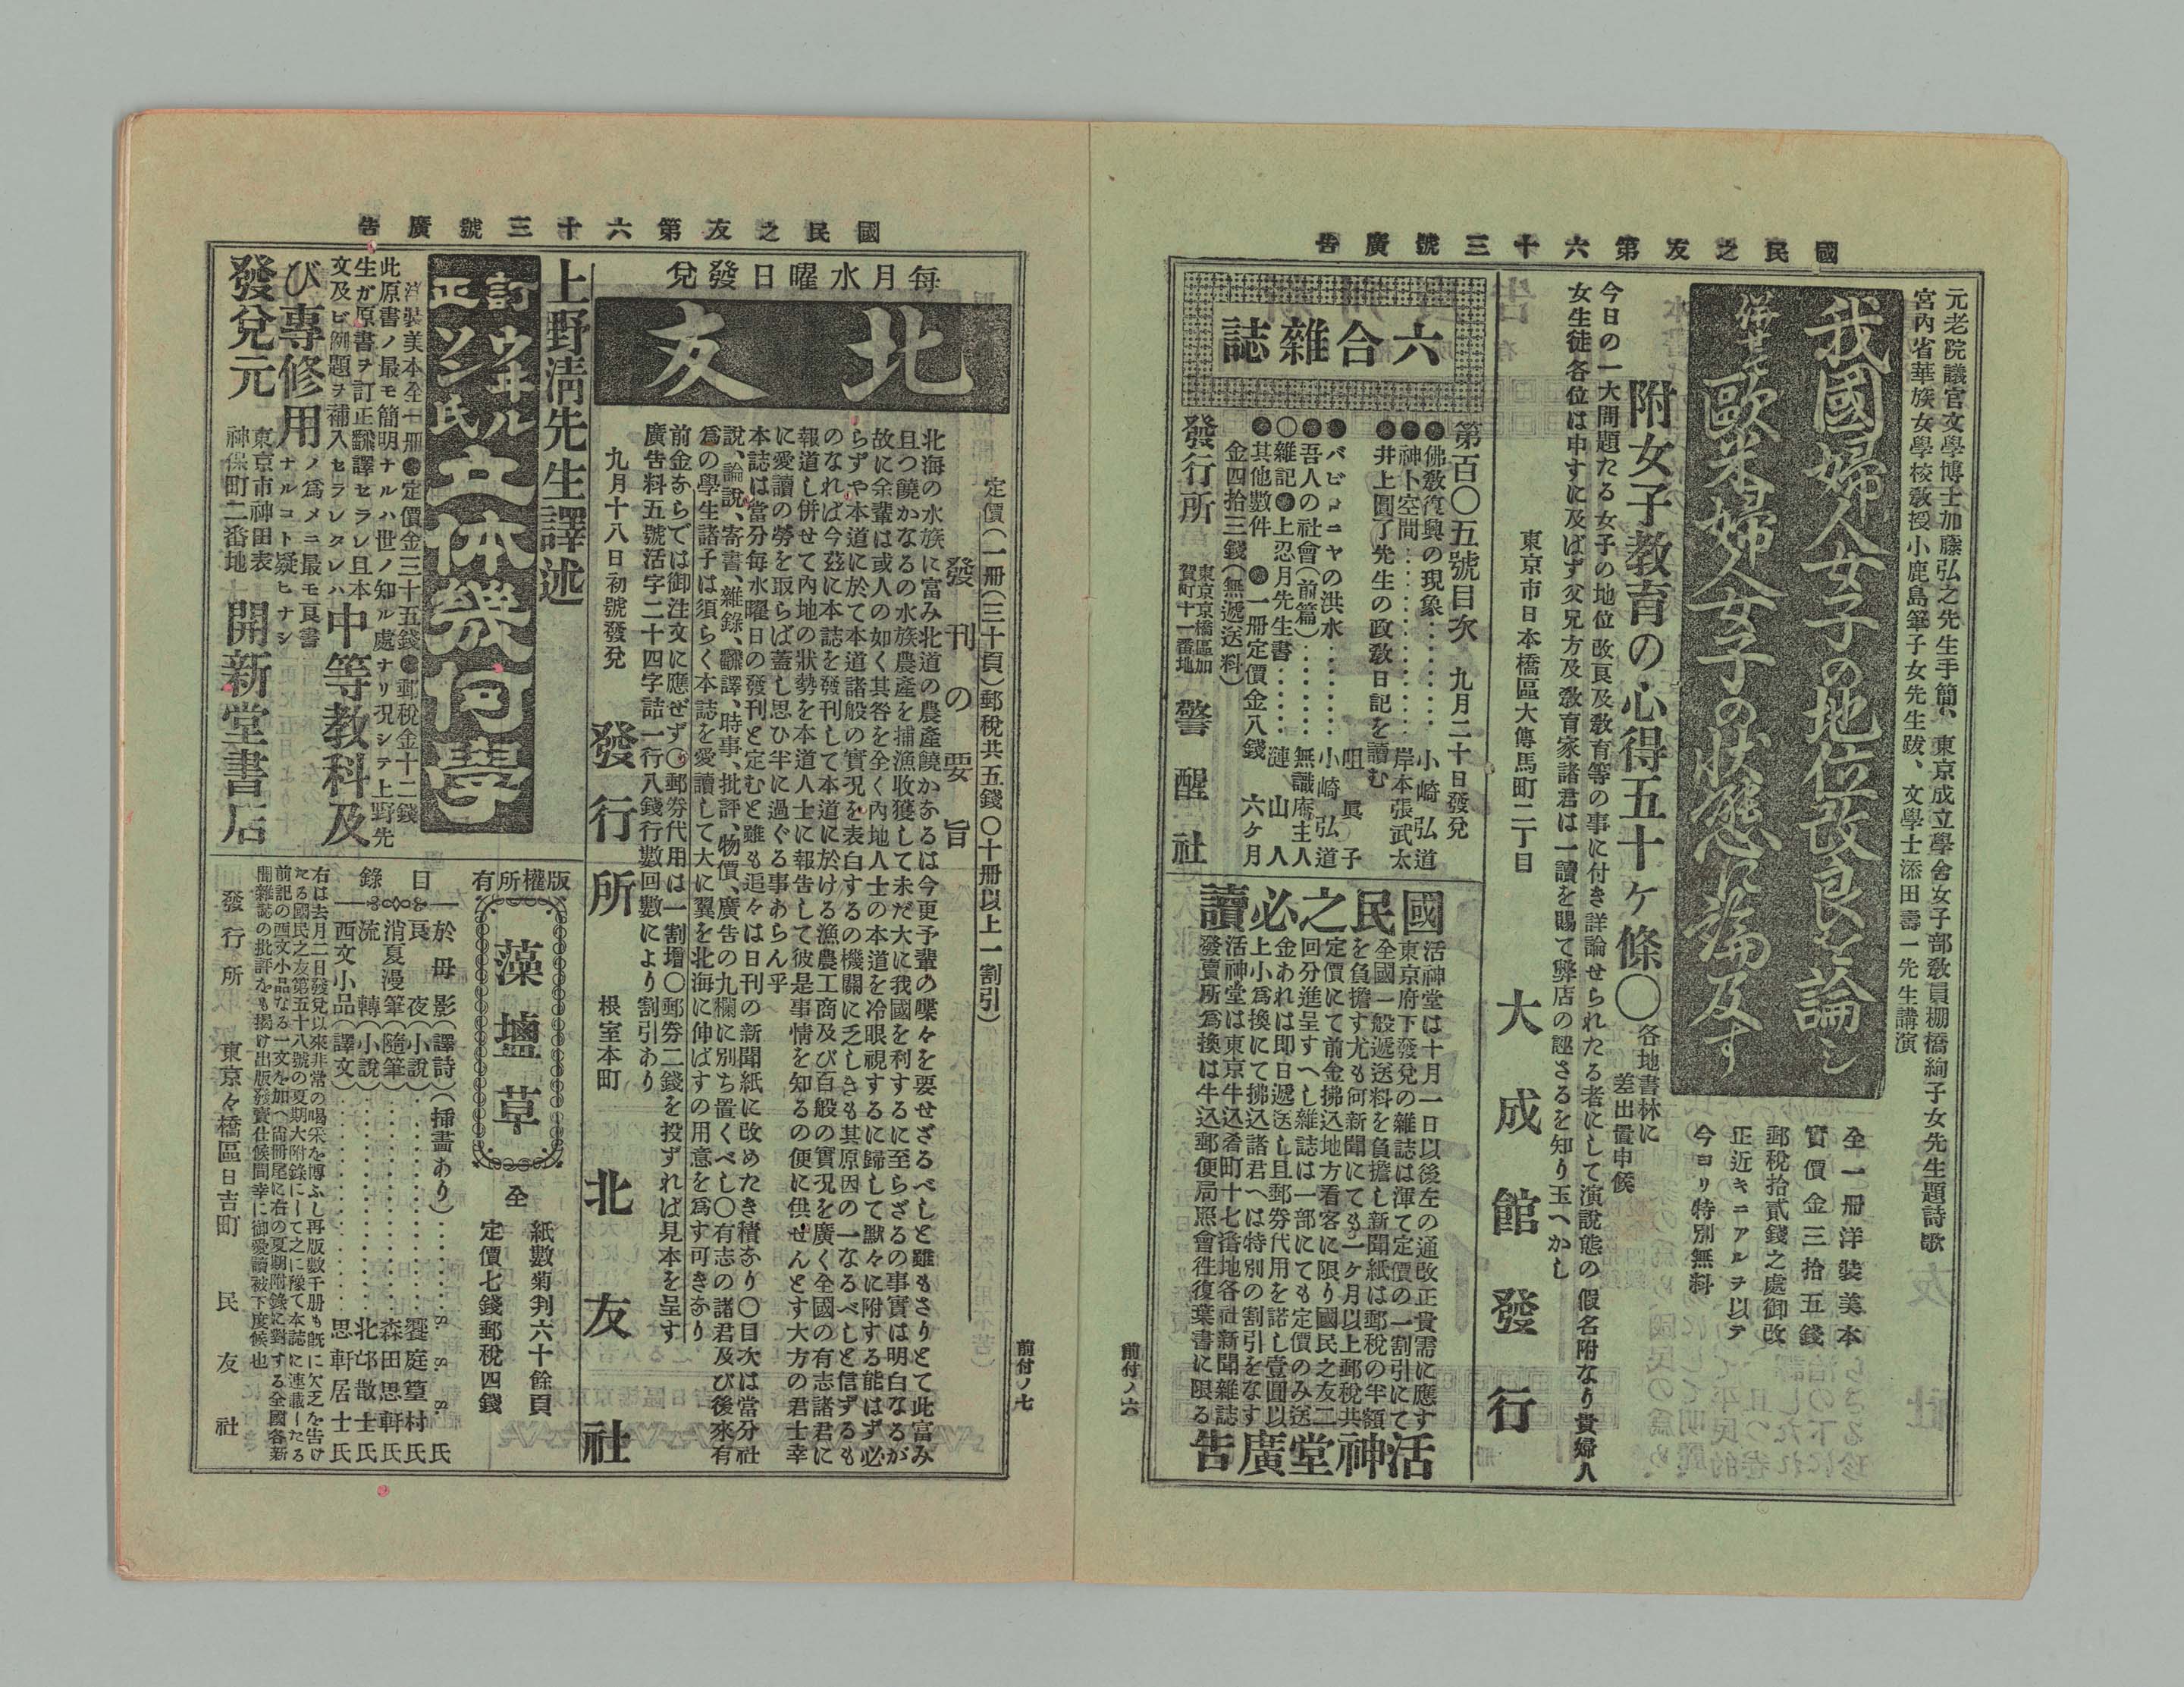 國民之友第六十三號廣告
元老院議官文學博士加藤弘之先生手簡、東京成立學舍女子部敎員棚橋絢子女先生題詩歌
宮內省華族女學校敎授小鹿島筆子女先生跋、文學士添田壽一先生講演
我國婦人女子の地位改良を論シ
併せて歐米婦人女子の狀態に論及す
全一冊洋裝美本
實價金三拾五錢
郵稅拾貳錢之處御改
正近キニアルヲ以テ
今ヨリ特別無料
附女子敎育の心得五十ヶ條〇
各地書林に
差出置申候
今日の一大問題たる女子の地位改良及敎育等の事に付き詳論せられたる者にして演說態の假名附なり貴婦人
女生徒各位は申すに及ばず父兄方及敎育家諸君は一讀を賜て弊店の誣さるを知り玉へかし
東京市日本橋區大傳馬町二丁目
大成館發行
六合雜誌
第百〇五號目次 九月二十日發兌
●佛敎復興の現象 小崎弘道
●神ト空間 岸本張武太
●井上圓了先生の政敎日記を讀む
咀眞子
●バビロニヤの洪水 小崎弘道
●吾人の社會(前篇) 無識庵主人
〇雜記●上忍月先生書 漣山人
●其他數件 ●一冊定價金八錢 六ヶ月
金四拾三錢(無遞送料)
發行所
東京京橋區加
賀町十一番地
警醒社
國民之必讀
活神堂は十月一日以後左の通改正貴需に應す
東京府下發兌の雜誌は渾て定價の一割引にて
全國一般遞送料を負擔し新聞紙は郵稅の半額
を負擔す尤も何新聞にても一ヶ月以上郵稅共
定價にて前金拂込地方看客に限り國民之友二
回分進呈すへし雜誌は一部にても定價のみ送
金あれは卽日遞送し且郵券代用を諾し壹圓以
上小爲換にて拂込諸君へは特別の割引をなす
活神堂は東京牛込肴町十七番地各社新聞雜誌
發賣所爲換は牛込郵便局照會往復葉書に限る
活神堂廣告
前付ノ六
國民之友第六十三號廣告
每月水曜日發兌
北友
定價(一冊(三十頁)郵稅共五錢〇十冊以上一割引)
發刊の要旨
北海の水族に富み北道の農產饒かなるは今更予輩の喋々を要せざるべしと雖もさりとて此富み
且つ饒かなるの水族農產を捕漁收獲して未だ大に我國を利するに至らざるの事實は明白なるが
故に余輩は或人の如く其咎を全く內地人士の本道を冷眼視するに歸して默々に附する能はず必
らずや本道に於て本道諸般の實況を表白するの機關に乏しきも其原因の一なるべしと信ずるも
のなれば今茲に本誌を發刊して本道に於ける漁農工商及び百般の實況を廣く全國の有志諸君に
報道し併せて內地の狀勢を本道人士に報告して彼是事情を知るの便に供せんとす大方の君士幸
に愛讀の勞を取らば蓋し思ひ半に過ぐる事あらん乎
本誌は當分每水曜日の發刊と定むと雖も追々は日刊の新聞紙に改めたき積なり〇目次は當分社
說、論說、寄書、雜錄、飜譯、時事、批評、物價、廣告の九欄に別ち置くべし〇有志の諸君及び後來有
爲の學生諸子は須らく本誌を愛讀して大に翼を北海に伸ばすの用意を爲す可きなり
前金ならでは御注文に應ぜず〇郵券代用は一割增〇郵券二錢を投ずれば見本を呈す
廣告料五號活字二十四字詰一行八錢行數回數により割引あり
九月十八日初號發兌
發行所
根室本町
北友社
上野淸先生譯述
訂正 ウヰルソン氏 立体幾何學
洋裝美本全一冊●定價金三十五錢●郵稅金十二錢
此原書ノ最モ簡明ナルハ世ノ知ル處ナリ況シテ上野先
生ガ原書ヲ訂正飜譯セラレ且本
文及ビ例題ヲ補入セラレタレハ
中等敎科及
び專修用ノ爲メニ最モ良書
ナルコト疑ヒナシ
發兌元
東京市神田表
神保町二番地
開新堂書店
版權所有
藻鹽草
全
紙數菊判六十餘頁
定價七錢郵稅四錢
目錄
於母影(譯詩)(挿畫あり) S. S. S.氏
良夜(小說) 饗庭篁村氏
消夏漫筆(隨筆) 森田思軒氏
流轉(小說) 北邙散士氏
西文小品(譯文) 思軒居士氏
右は去月二日發兌以來非常の喝采を博ふし再版數千册も旣に欠乏を告け
たる國民之友第五十八號の夏期大附錄にして之に豫て本誌に連載したる
前記の西文小品なる一文を加へ尙冊尾に右の夏期附錄に對する全國各新
聞雜誌の批評をも揭け出版發賣仕候間幸に御愛讀被下度候也
發行所 東京々橋區日吉町 民友社
前付ノ七